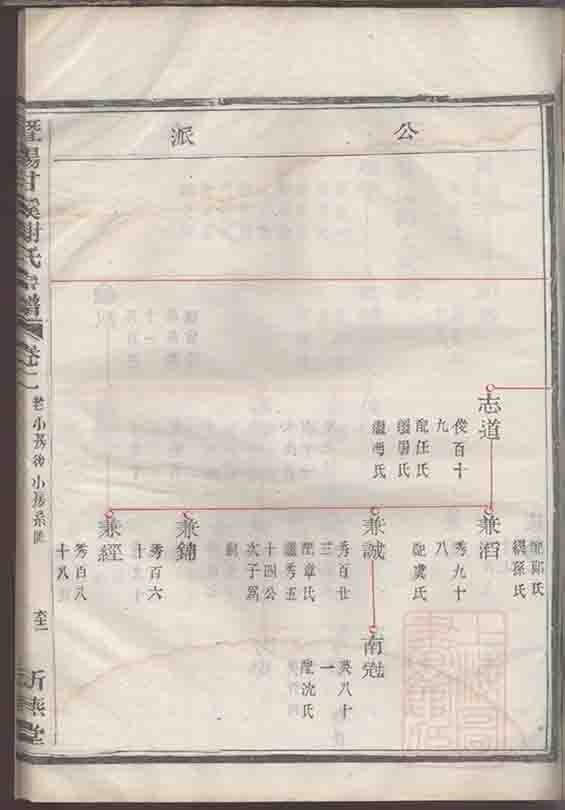 公派
志道
俊百十
九
配任氏
繼湯氏
繼馮氏
配鄭氏
繼孫氏
兼滔
秀九十
八
配虞氏
兼誠
秀百廿
三
配章氏
繼秀五
十四公
次子爲
嗣
兼鏞
秀百六
兼經
秀百八
十八
南
英八十
一
配沈氏
暨陽甘溪謝氏宗譜
卷二
老小房後小房系圖